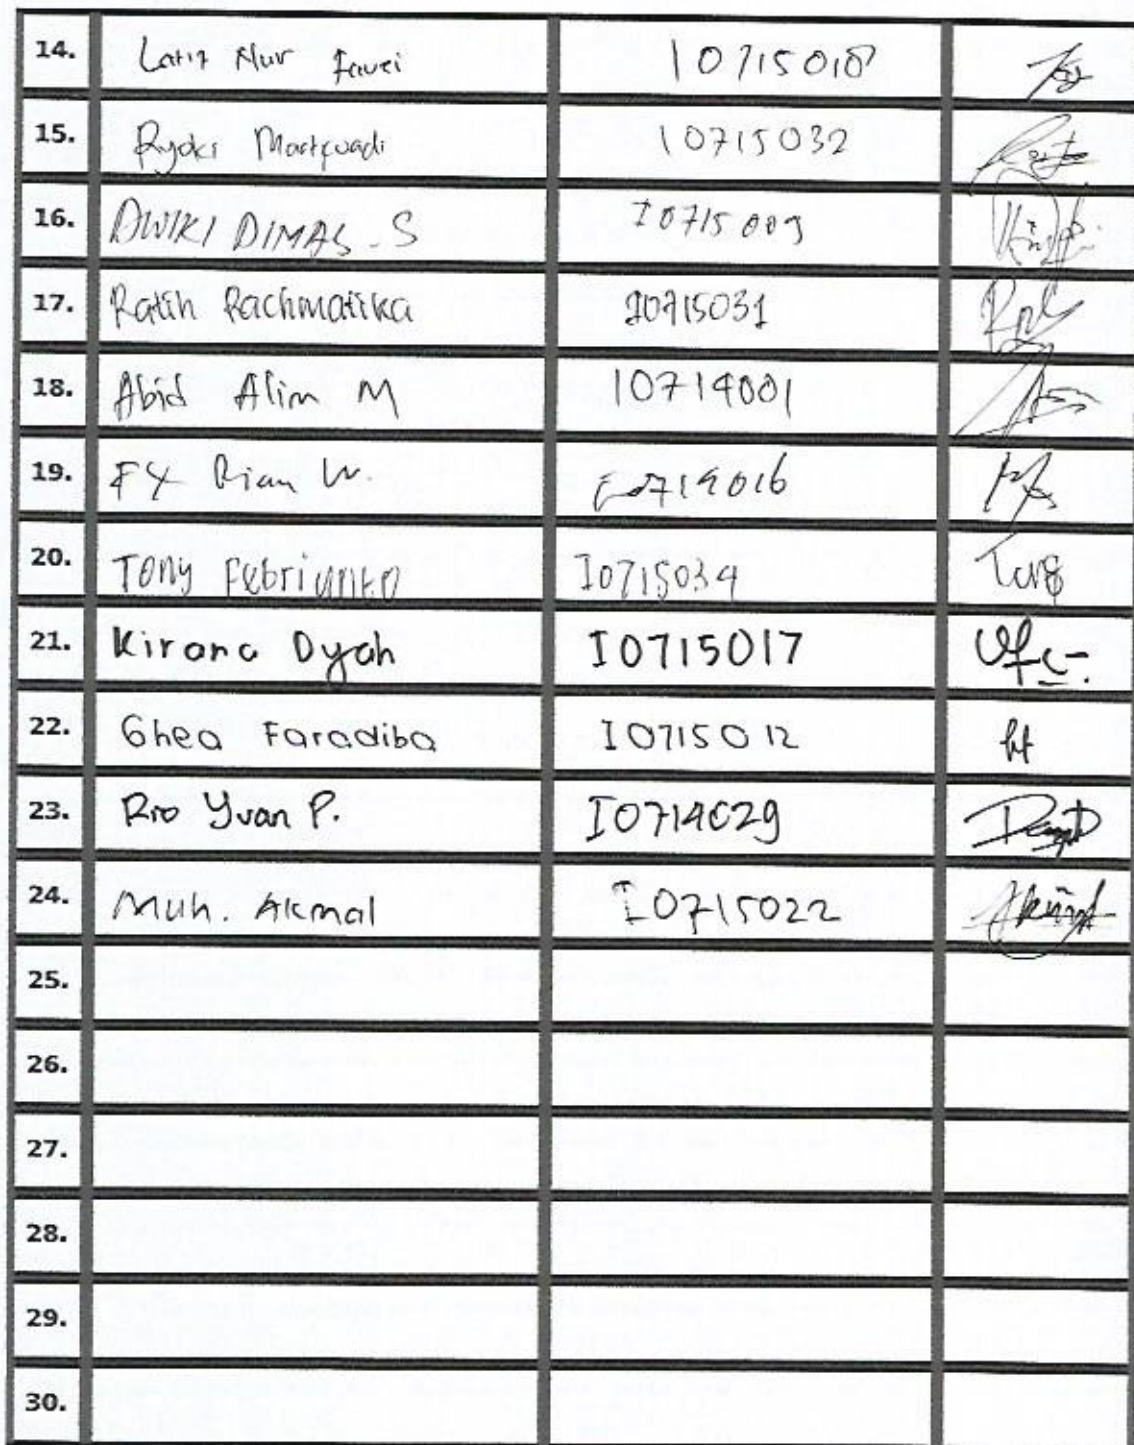 14. Nur I0715018
15. Ryoki I0715032
16. DWIKI DIMAS. S I0715009
17. Ratih Rachmatika I0715031
18. Abid Alim M I0714001
19. FX Rian W. I0714016
20. Tony Febrianto I0715034
21. Kirana Dyah I0715017
22. Ghea Faradiba I0715012
23. Rio Yvan P. I0714029
24. Muh. Akmal I0715022
25.
26.
27.
28.
29.
30.